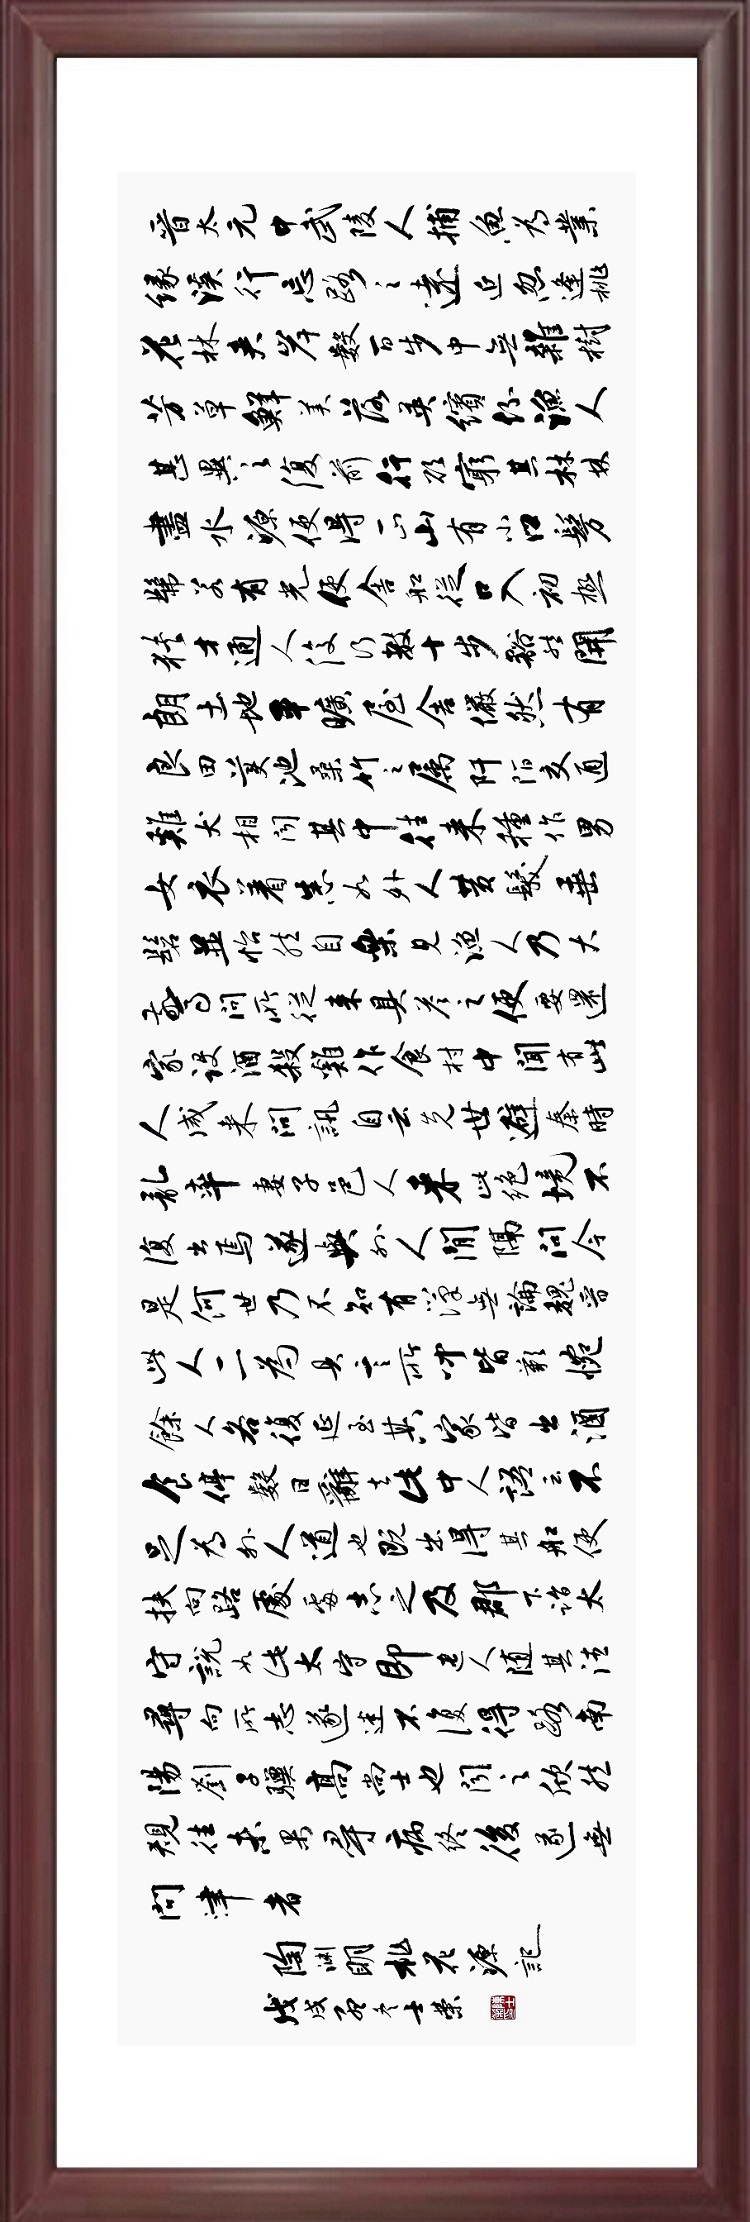 晉太元中武陵人捕魚為業
緣溪行忘路之遠近忽逢桃
花林夾岸數百步中無雜樹
芳草鮮美落英繽紛漁人
甚異之復前行欲窮其林林
盡水源便得一山山有小口髣
髴若有光便舍船從口入初極
狹才通人復行數十步豁然開
朗土地平曠屋舍儼然有
良田美池桑竹之属阡陌交通
雞犬相聞其中往来種作男
女衣着悉如外人黄髮垂
髫並怡然自樂見漁人乃大
驚問所從来具答之便要還
家設酒殺雞作食村中聞有此
人咸来問訊自云先世避秦時
亂率妻子邑人来此絕境不
復出焉遂與外人間隔問今
是何世乃不知有漢無論魏晉
此人一一為具言所聞皆歎惋
餘人各復延至其家皆出酒
食停數日辭去此中人語云不
足為外人道也既出得其船便
扶向路處處志之及郡下詣太
守說如此太守即遣人随其往
尋向所志遂迷不復得路南
陽劉子驥高尚士也聞之欣然
規往未果尋病終後遂無
問津者
陶渊明桃花源記
戊戌孟冬士榮